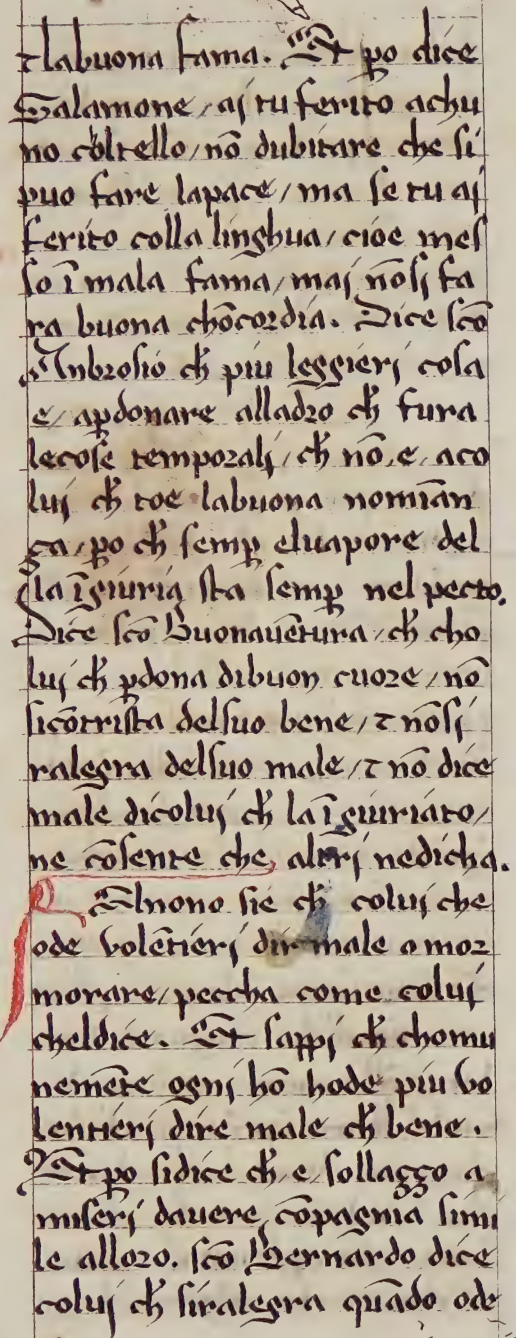 ⁊labuona fama. Et ꝑo dice
Salamone / aj tu ferito achu
no cōltello / nō dubitare che si
puo fare lapace / ma se tu aj
ferito colla linghua / cioe mes
so ī mala fama / maj nōsj fa
ra buona chōcordia. Dice scō
Anbrosio cħ piu leggierj cosa
e / aꝑdonare alladro cħ fura
lecose temporalj / cħ nō e / aco
luj cħ toe labuona nomiā
ça / ꝑo cħ semꝑ eluapore del
la īgiuria sta semꝑ nel pecto.
Dice scō Buonauētura / cħ cho
luj cħ ꝑdona dibuon cuore / nō
sicōtrista delsuo bene / ⁊ nōsj
ralegra delsuo male / ⁊ nō dice
male dicoluj cħ la īgiuriato /
ne cōsente che altrj nedicha.
Elnono sie cħ coluj che
ode volētierj dir male o mor
morare / peccha come coluj
cheldice. Et sappj cħ chomu
nemēte ognj hō hode piu vo
lentierj dire male cħ bene.
Et ꝑo sidice cħ e / sollaggo a
miserj dauere cōpagnia simi
le alloro. scō Bernardo dice
coluj cħ siralegra quādo ode